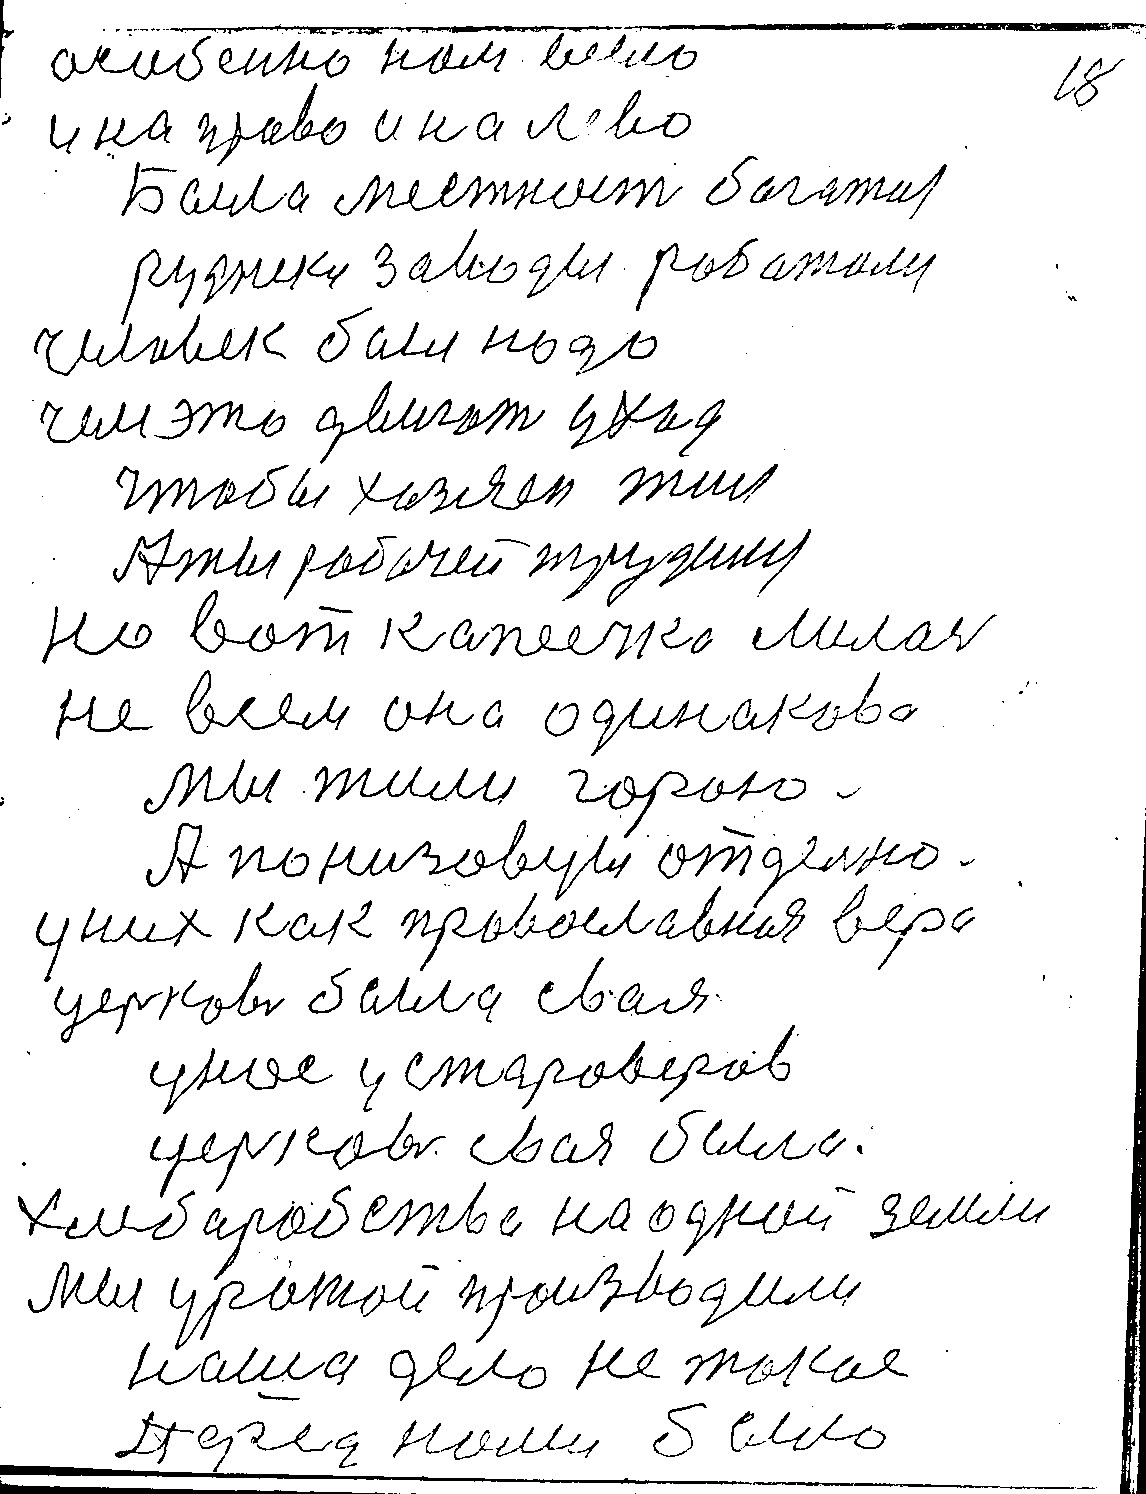 18
особенно нам весло
и на право и на лево
Была местност богатая
рудники заводы работали
человек был надо
чем это двигат уход
чтобы хозяен жил
А ты рабочей трудись
но вот капеечка милая
не всем она одинакова
мы жили горою -
А понизовцы отделно -
у них как православная вера
церковь была свая
у нас у староверов
церковь свая была.
хлебаробства на одной земли
мы урожой производили
наша дело не токое
Перед нами было